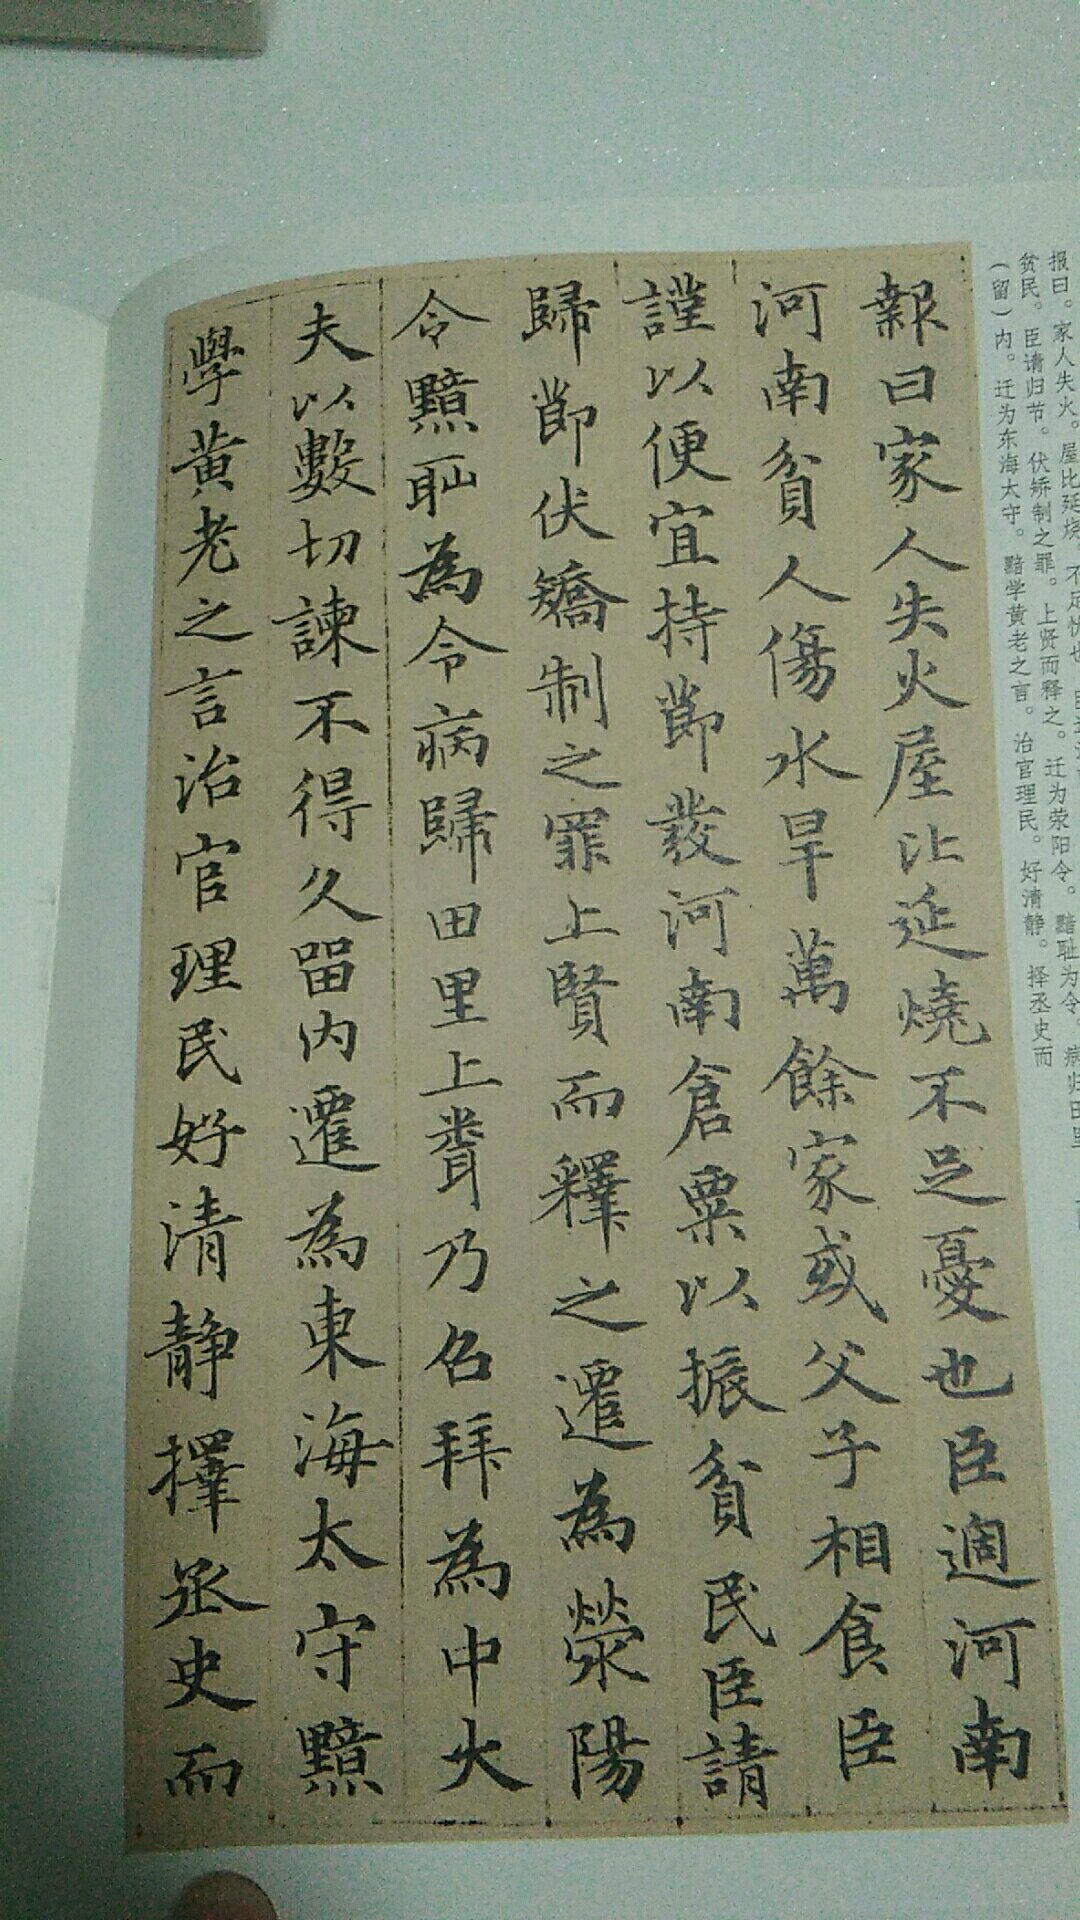 报曰。家人失火。屋比延烧。不足忧也
贫民。臣请归节。伏矫制之罪。上贤而释之。迁为荥阳令。黯耻为令。病归田里
(留)内。迁为东海太守。黯学黄老之言。治官理民。好清静。择丞史而
報曰家人失火屋比延燒不足憂也臣過河南
河南貧人傷水旱萬餘家或父子相食臣
謹以便宜持節發河南倉粟以振貧民臣請
歸節伏矯制之罪上賢而釋之遷為滎陽
令黯恥為令病歸田里上聞乃召拜為中大
夫以數切諫不得久留内遷為東海太守黯
學黄老之言治官理民好清静擇丞史而